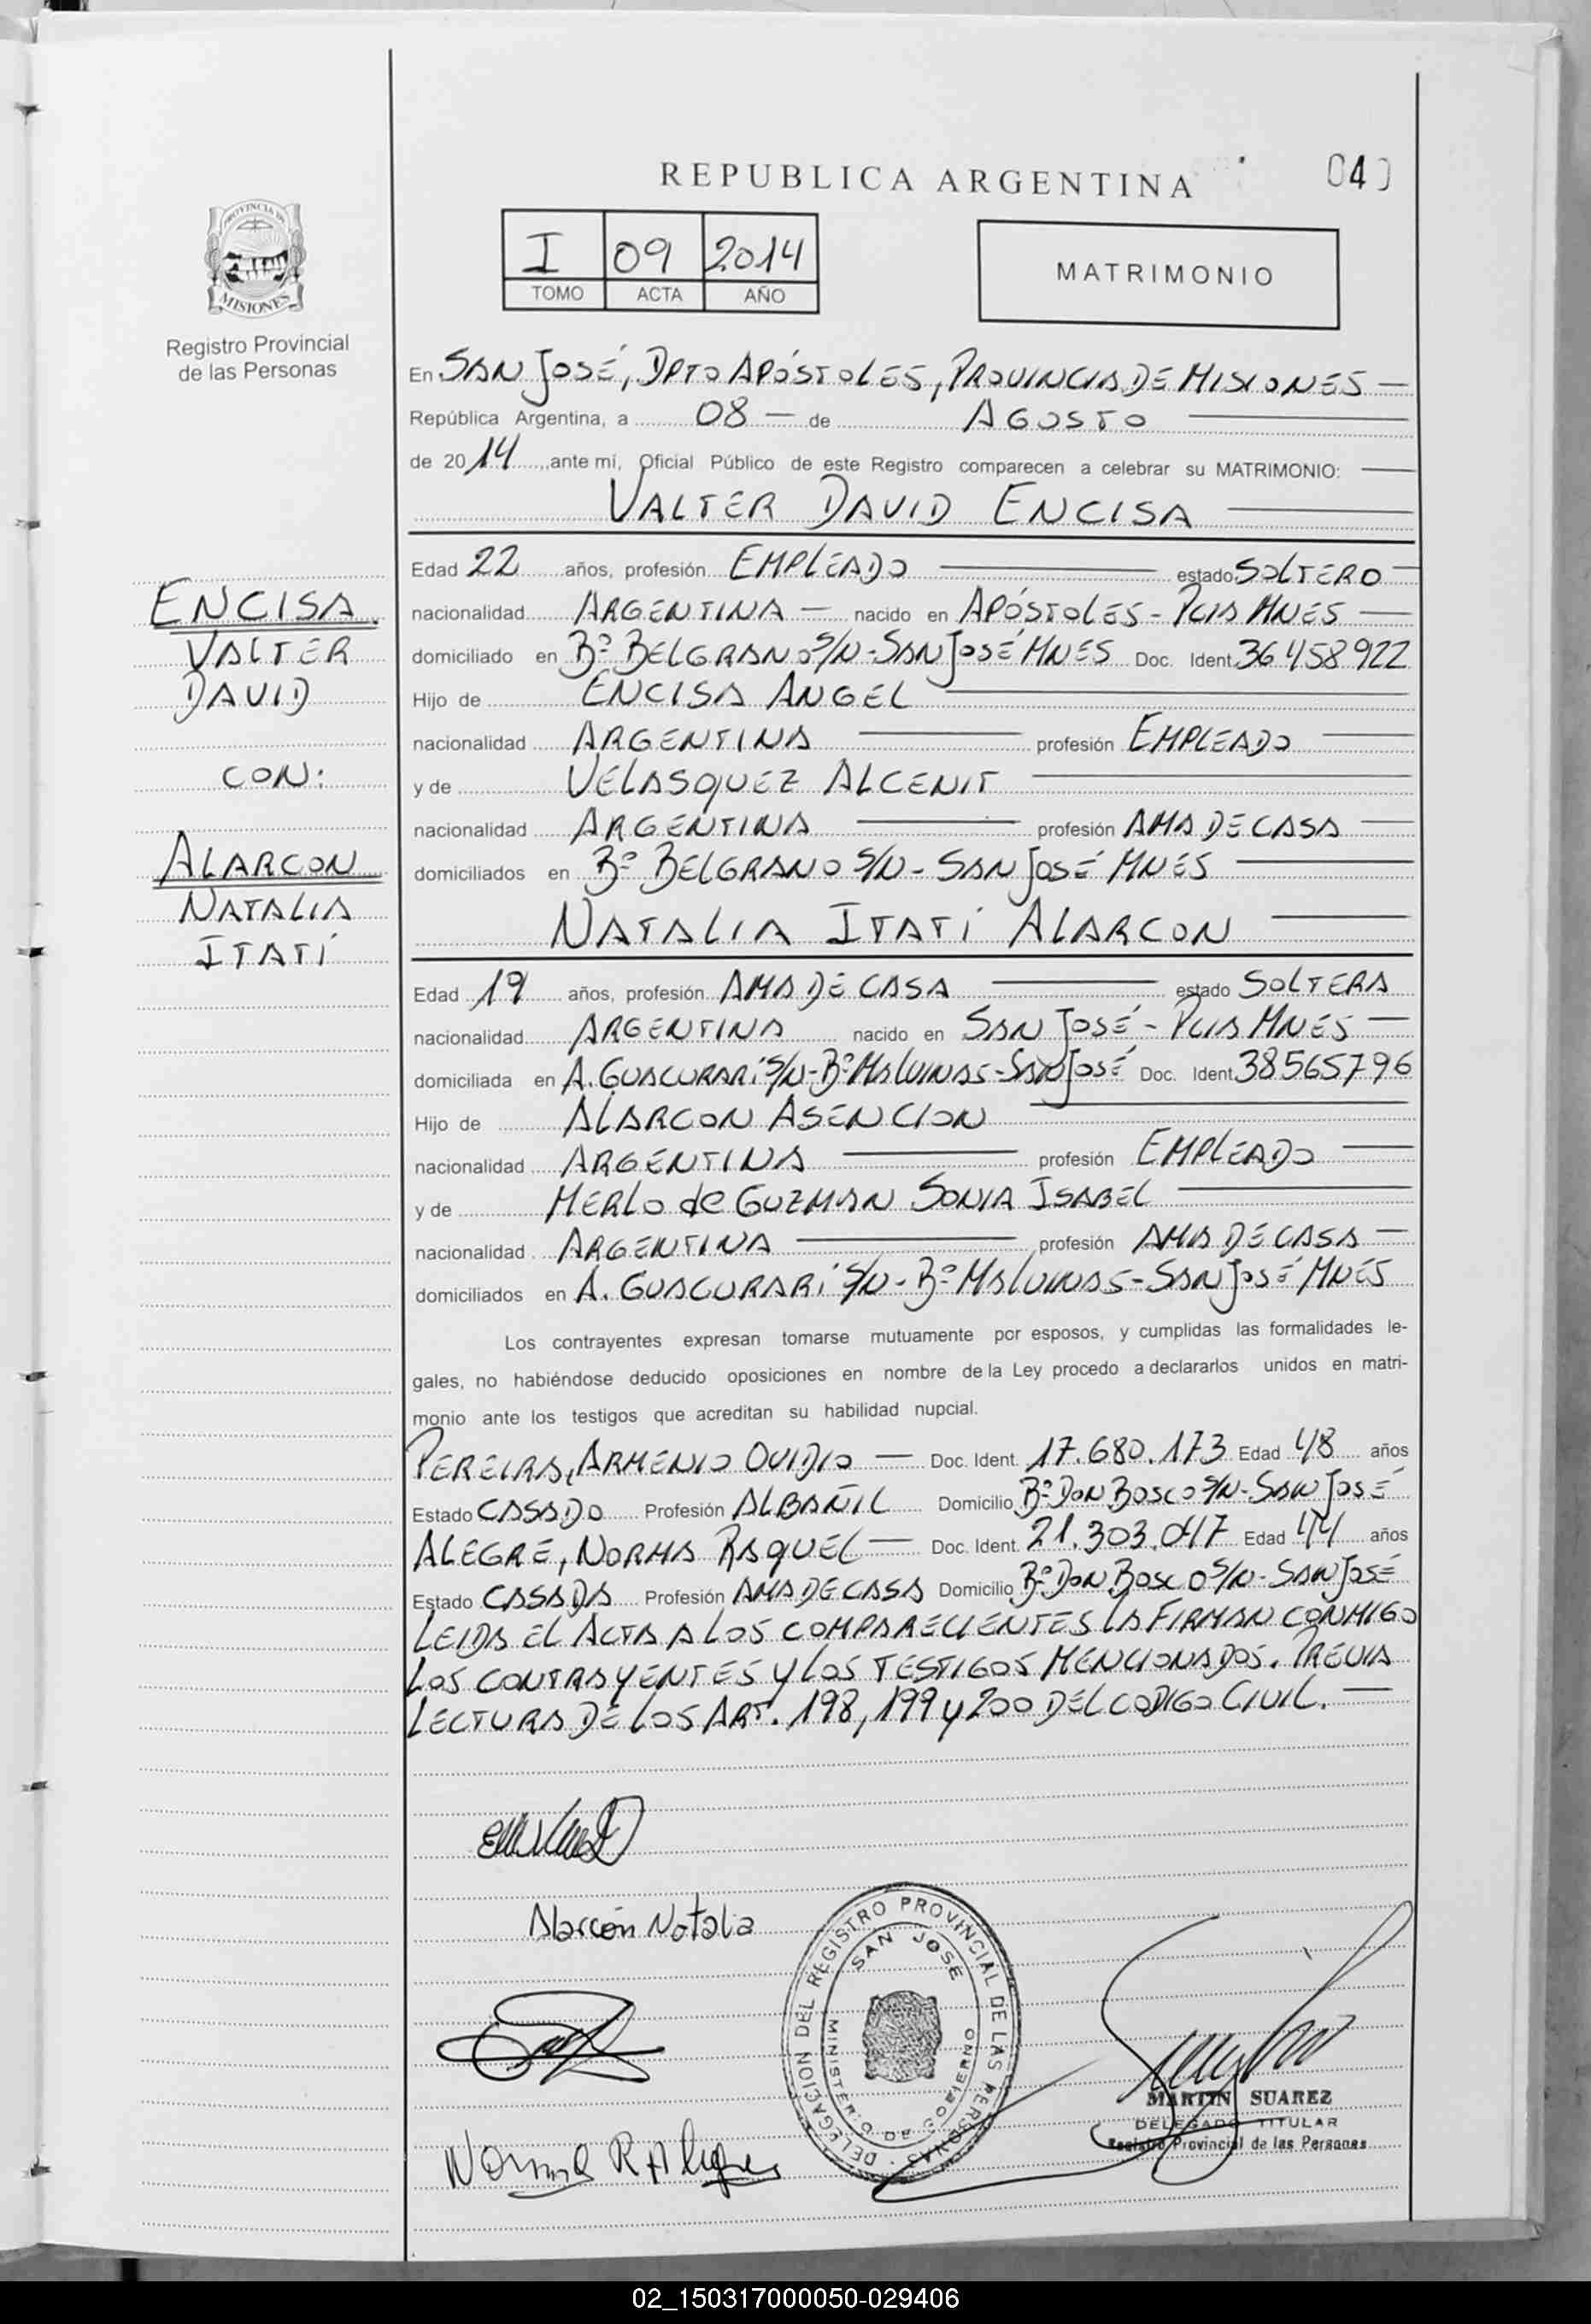 REPUBLICA ARGENTINA
04
I 09 2014
TOMO ACTA AÑO
MATRIMONIO
PROVINCIA DE
MISIONES
Registro Provincial
de las Personas
En SAN JOSÉ, DPTO APÓSTOLES, PROVINCIA DE MISIONES —
República Argentina, a 08 — de AGOSTO
de 2014, ante mí, Oficial Público de este Registro comparecen a celebrar su MATRIMONIO:
VALTER DAVID ENCISA
Edad 22 años, profesión EMPLEADO estado SOLTERO
nacionalidad ARGENTINA — nacido en APÓSTOLES - PCIA MNES —
domiciliado en Bº BELGRANO S/N - SAN JOSÉ MNES Doc. Ident. 36458922
Hijo de ENCISA ANGEL
nacionalidad ARGENTINA profesión EMPLEADO
y de VELASQUEZ ALCENIT
nacionalidad ARGENTINA profesión AMA DE CASA
domiciliados en Bº BELGRANO S/N - SAN JOSÉ MNES
NATALIA ITATÍ ALARCON
Edad 19 años, profesión AMA DE CASA estado SOLTERA
nacionalidad ARGENTINA nacido en SAN JOSÉ - PCIA MNES —
domiciliada en A. GUACURARÍ S/N - Bº MALVINAS - SAN JOSÉ Doc. Ident. 38565796
Hijo de ALARCON ASENCION
nacionalidad ARGENTINA profesión EMPLEADO
y de MERLO de GUZMAN SONIA ISABEL
nacionalidad ARGENTINA profesión AMA DE CASA —
domiciliados en A. GUACURARÍ S/N - Bº MALVINAS - SAN JOSÉ MNES
ENCISA
VALTER
DAVID
CON:
ALARCON
NATALIA
ITATÍ
Los contrayentes expresan tomarse mutuamente por esposos, y cumplidas las formalidades le-
gales, no habiéndose deducido oposiciones en nombre de la Ley procedo a declararlos unidos en matri-
monio ante los testigos que acreditan su habilidad nupcial.
PEREIRA, ARMENIO OVIDIO — Doc. Ident. 17.680.173 Edad 48 años
Estado CASADO Profesión ALBAÑIL Domicilio Bº DON BOSCO S/N - SAN JOSÉ
ALEGRE, NORMA RAQUEL — Doc. Ident. 21.303.047 Edad 44 años
Estado CASADA Profesión AMA DE CASA Domicilio Bº DON BOSCO S/N - SAN JOSÉ
LEIDA EL ACTA A LOS COMPARECIENTES LA FIRMAN CONMIGO
LOS CONTRAYENTES Y LOS TESTIGOS MENCIONADOS. PREVIA
LECTURA DE LOS ART. 198, 199 y 200 DEL CODIGO CIVIL. —
Alarcón Natalia
DELEGACION DEL REGISTRO PROVINCIAL DE LAS PERSONAS
SAN JOSE
MINISTERIO DE GOBIERNO
MARTIN SUAREZ
DELEGADO TITULAR
Registro Provincial de las Personas
Norma R Alegre
02_150317000050-029406